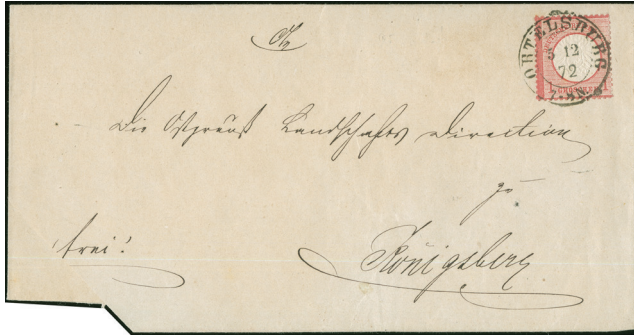 ORTELSBURG
5 12
72
Die Ostpreuß Landschafts Direction
zu
Königsberg
frei!